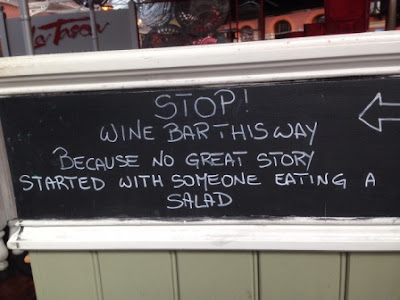 La Tasca
STOP!
WINE BAR THIS WAY
BECAUSE NO GREAT STORY
STARTED WITH SOMEONE EATING A
SALAD